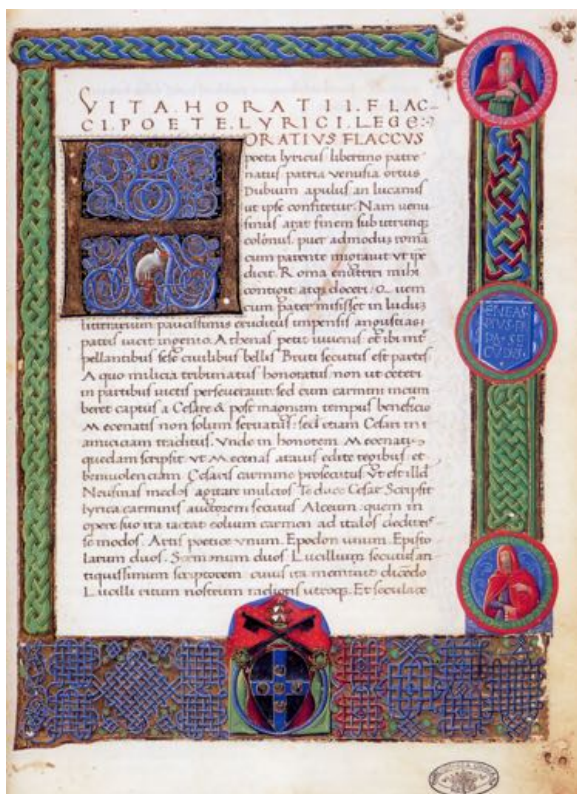 VITA.HORATII.FLAC-
CI.POETE.LYRICI.LEGE:
ORATIVS FLACCVS
poeta lyricus libertino patre
natus patria venusia ortus
Dubium apulus an lucanus
ut ipse confitetur. Nam venu
sinus arat finem sub utrunque
colonus. puer admodum romā
cum parente migravit ut ipse
dicit. Romā enutriri mihi
contigit atque doceri. Quem
cum pater misisset in ludum
litterarium paucissimis eruditus impensis angustias
patris vicit ingenio. Athenas petit iuvenis et ibi
pellantibus sese civilibus bellis Bruti secutus est partes
A quo milicia tribunatus honoratus non ut ceteri
in partibus victis perseveravit: sed cum carmini incum
beret captus a Cesare & post magnum tempus beneficio
Mecenatis non solum servatus: sed etiam Cesari in
amiciciam traditus. Vnde in honorem Mecenatis
quedam scripsit. vt Mecenas atavis edite regibus. et
benivolenciam Cesaris carmine prosecutus. vt est illud
Neu sinas medos equitare inultos Te duce Cesar. Scripsit
lyrica carminis auctorem secutus Alceum. quem in
opere suo ita iactat eolium carmen ad italos
se modos. Artis poetice vnum. Epodon vnum. Episto
larum duos. Sermonum duos Lucillium secutus an
tiquissimum scriptorem. cuius ita meminit dicendo
Lucilli ritum nostrum melioris utroque. Et secula
ENEAS
PIVS
PA